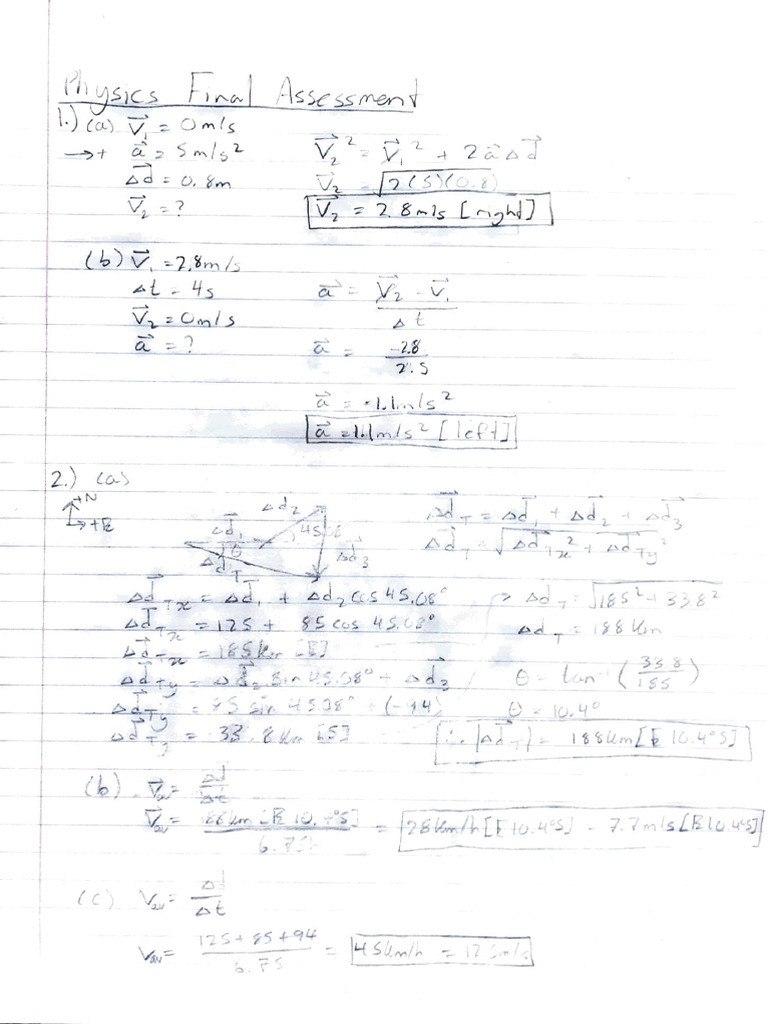 Physics Final Assessment
1.) (a) V⃗₁ = 0m/s
→+ a⃗ = 5m/s²
Δd⃗ = 0.8m
V⃗₂ = ?
V⃗₂² = V⃗₁² + 2a⃗Δd⃗
V⃗₂ = √2(5)(0.8)
V⃗₂ = 2.8m/s [right]
(b) V⃗₁ = 2.8m/s
Δt = 4s
V⃗₂ = 0m/s
a⃗ = ?
a⃗ = V⃗₂ - V⃗₁ / Δt
a⃗ = -2.8 / 2.5
a⃗ = -1.1m/s²
a⃗ = 1.1m/s² [left]
2.) (a)
+N
+E
Δd⃗₁
Δd₂
Δd⃗₃
Δd⃗T
θ
Δd⃗T = Δd⃗₁ + Δd⃗₂ + Δd⃗₃
Δd⃗T = √Δd⃗Tx² + Δd⃗Ty²
Δd⃗Tx = Δd⃗₁ + Δd₂cos45.08°
Δd⃗Tx = 125 + 85cos 45.08°
Δd⃗Tx = 185km [E]
Δd⃗Ty = Δd⃗₂ sin 45.08° + Δd⃗₃
Δd⃗Ty = 85 sin 45.08° + (-94)
Δd⃗Ty = 33.8km [S]
→ ΔdT = √185² + 33.8²
ΔdT = 188km
θ = tan⁻¹ (33.8 / 185)
θ = 10.4°
∴ |Δd⃗T| = 188km [E 10.4°S]
(b) V⃗av = Δd⃗ / Δt
V⃗av = 188km [E 10.4°S] / 6.75 = 28km/h [E 10.4°S] = 7.7m/s [E 10.4°S]
(c) Vav = Δd / Δt
Vav = 125 + 85 + 94 / 6.75 = 45km/h = 12.5m/s